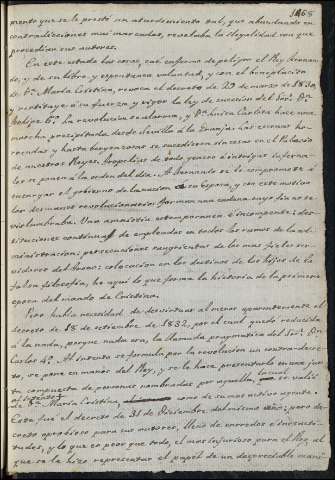 1468
pronto que se le prestó un aturdimiento tal, que abundando en
contradicciones mas marcadas, revelaba la ilegalidad con que
procedian sus autores.
En este estado las cosas, cae enfermo de peligro el Rey Fernan-
do, y de su libre y espontanea voluntad, y con el beneplacito
de D.ª Maria Cristina, revoca el decreto de 29 de marzo de 1830,
y restituye á su fuerza y vigor la ley de sucesion del Señor Dn.
Felipe 5.º La revolucion se alarma, y D.ª Luisa Carlota hace una
marcha precipitada desde Sevilla á la Granja: las escenas hor-
rendas y hasta vergonzosas se suceden sin cesar en el Palacio
de nuestros Reyes. Tropelias de todo genero é intrigas inferna-
les se ponen á la orden del dia. A Fernando se le compromete á
encargar el gobierno de la nacion á su Esposa, y con este motivo
los desmanes revolucionarios forman una cadena cuyo fin no se
vislumbraba. Una amnistia estemporanea é incompetente; des-
tituciones continuas de empleados en todos los ramos de la ad-
ministracion; persecuciones sangrientas de los mas fieles ser-
vidores del Trono; colocacion en los destinos de los hijos de la
falsa filosofia, he aqui lo que forma la historia de la primera
epoca del mando de Cristina.
Pero habia necesidad de desvirtuar al menos aparentemente el
decreto de 18 de setiembre de 1832, por el cual quedó reducida
á la nada, porque nada era, la llamada pragmatica del Señor Dn.
Carlos 4.º Al intento se formula por la revolucion un contradecre-
to, se pone en manos del Rey, y se le hace presentarlo en una jun-
ta compuesta de personas nombradas por aquella, lo cual se valió
de D.ª Maria Cristina, como de sumo motivo aparente
Este fue el decreto de 31 de Diciembre del mismo año; pero de-
creto oprobioso para sus autores, lleno de enredos é inexacti-
tudes, y lo que es peor que todo, el mas injurioso para el Rey, al
que se le hizo representar el papel de un despreciable mani-